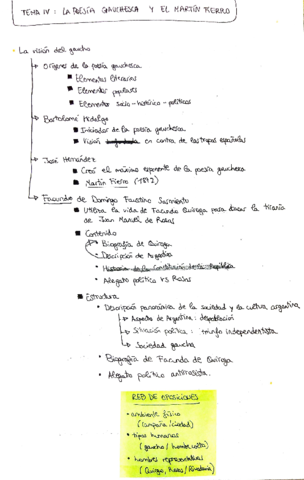 TEMA IV : LA POESÍA GAUCHESCA Y EL MARTÍN FIERRO
La visión del gaucho
Orígenes de la poesía gauchesca
Elementos literarios
Elementos populares
Elementos socio-histórico-políticos
Bartolomé Hidalgo
Iniciador de la poesía gauchesca
Visión en contra de las tropas españolas
José Hernández
Creó el máximo exponente de la poesía gauchesca
Martín Fierro (1872)
Facundo de Domingo Faustino Sarmiento
Utiliza la vida de Facundo Quiroga para atacar la tiranía
de Juan Manuel de Rosas
Contenido
Biografía de Quiroga
Descripción de Argentina
Historia de la Constitución de la República
Alegato político VS Rosas
Estructura
Descripción panorámica de la sociedad y la cultura argentina
Aspecto de Argentina: despoblación
Situación política: triunfo independentista
Sociedad gaucha
Biografía de Facundo de Quiroga
Alegato político antirrosista.
RED DE OPOSICIONES
ambiente físico
(campaña/ciudad)
tipos humanos
(gaucho/hombre culto)
hombres representativos
(Quiroga, Rosas/Rivadavia)